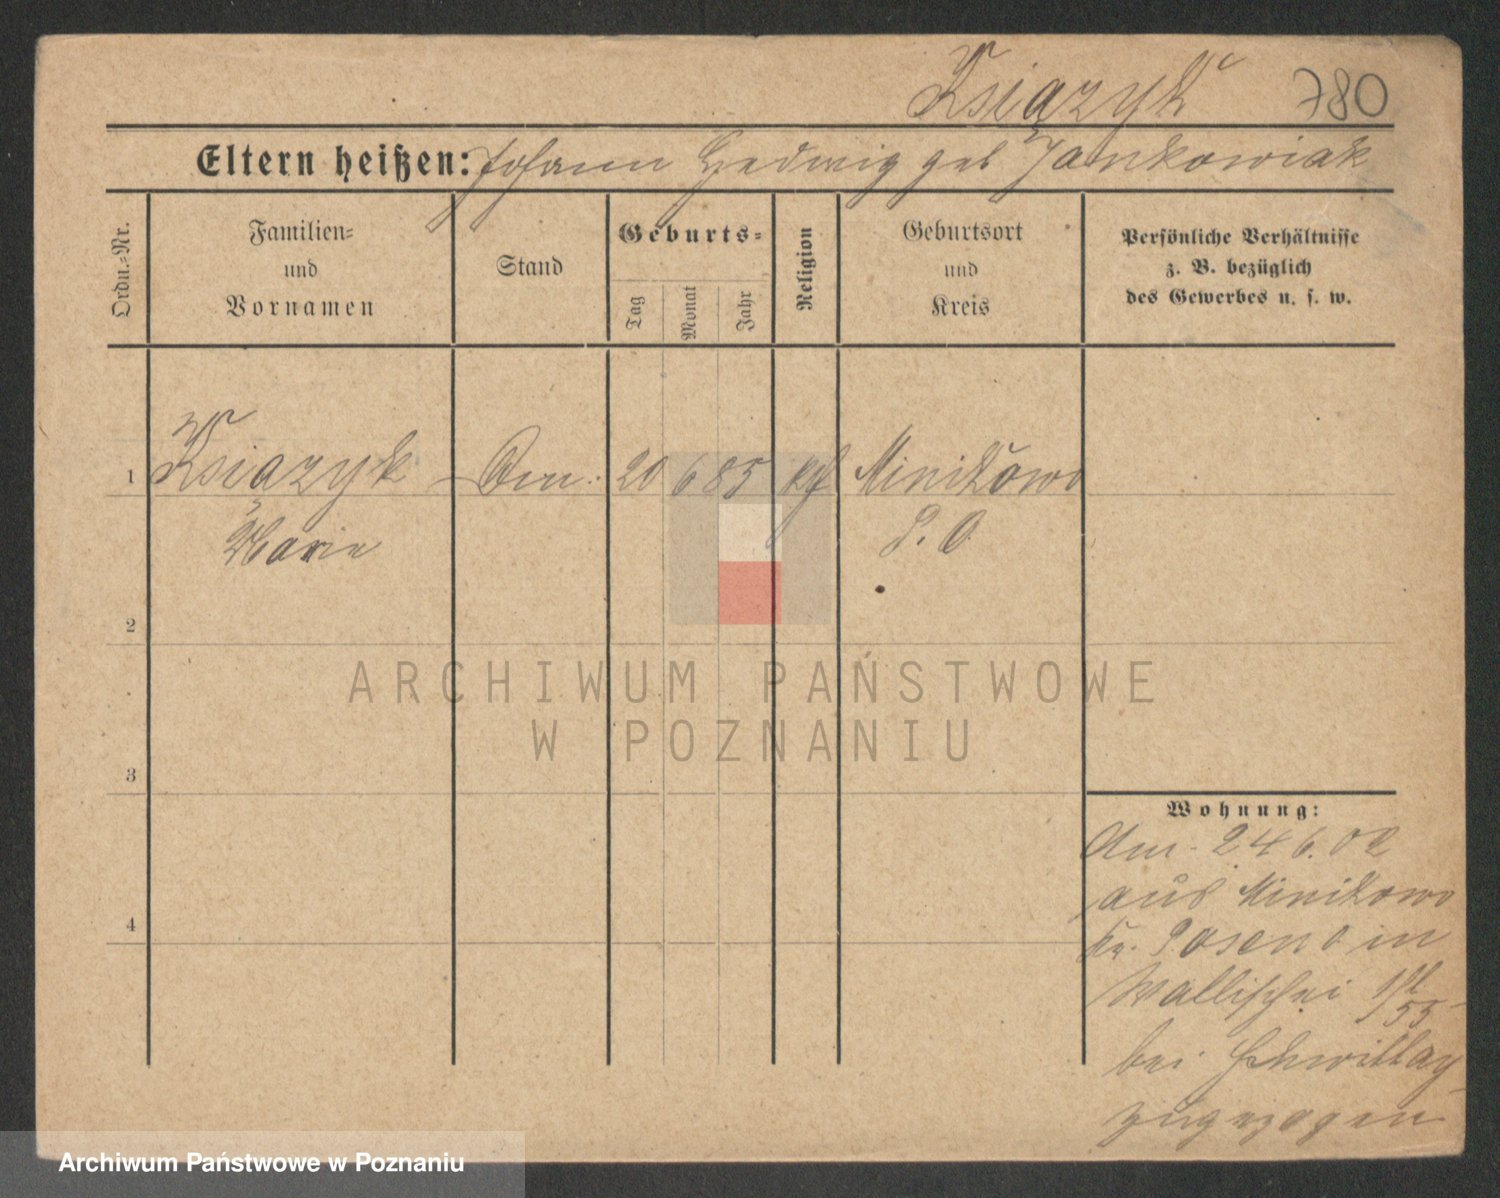 Książyk 780
Eltern heißen: Johann Hedwig geb Jankowiak
Ordn.-Nr.
Familien-
und
Vornamen
Stand
Geburts-
Tag
Monat
Jahr
Religion
Geburtsort
und
Kreis
Persönliche Verhältnisse
z. B. bezüglich
des Gewerbes u. s. w.
1 Książyk 20 6 85 kf Minikowo
Marie P. O.
2
3
4
Wohnung:
24 6. 02
aus Minikowo
Kr. Posen O in
Wallischei
55
bei
zugezogen
ARCHIWUM PAŃSTWOWE
W POZNANIU
Archiwum Państwowe w Poznaniu